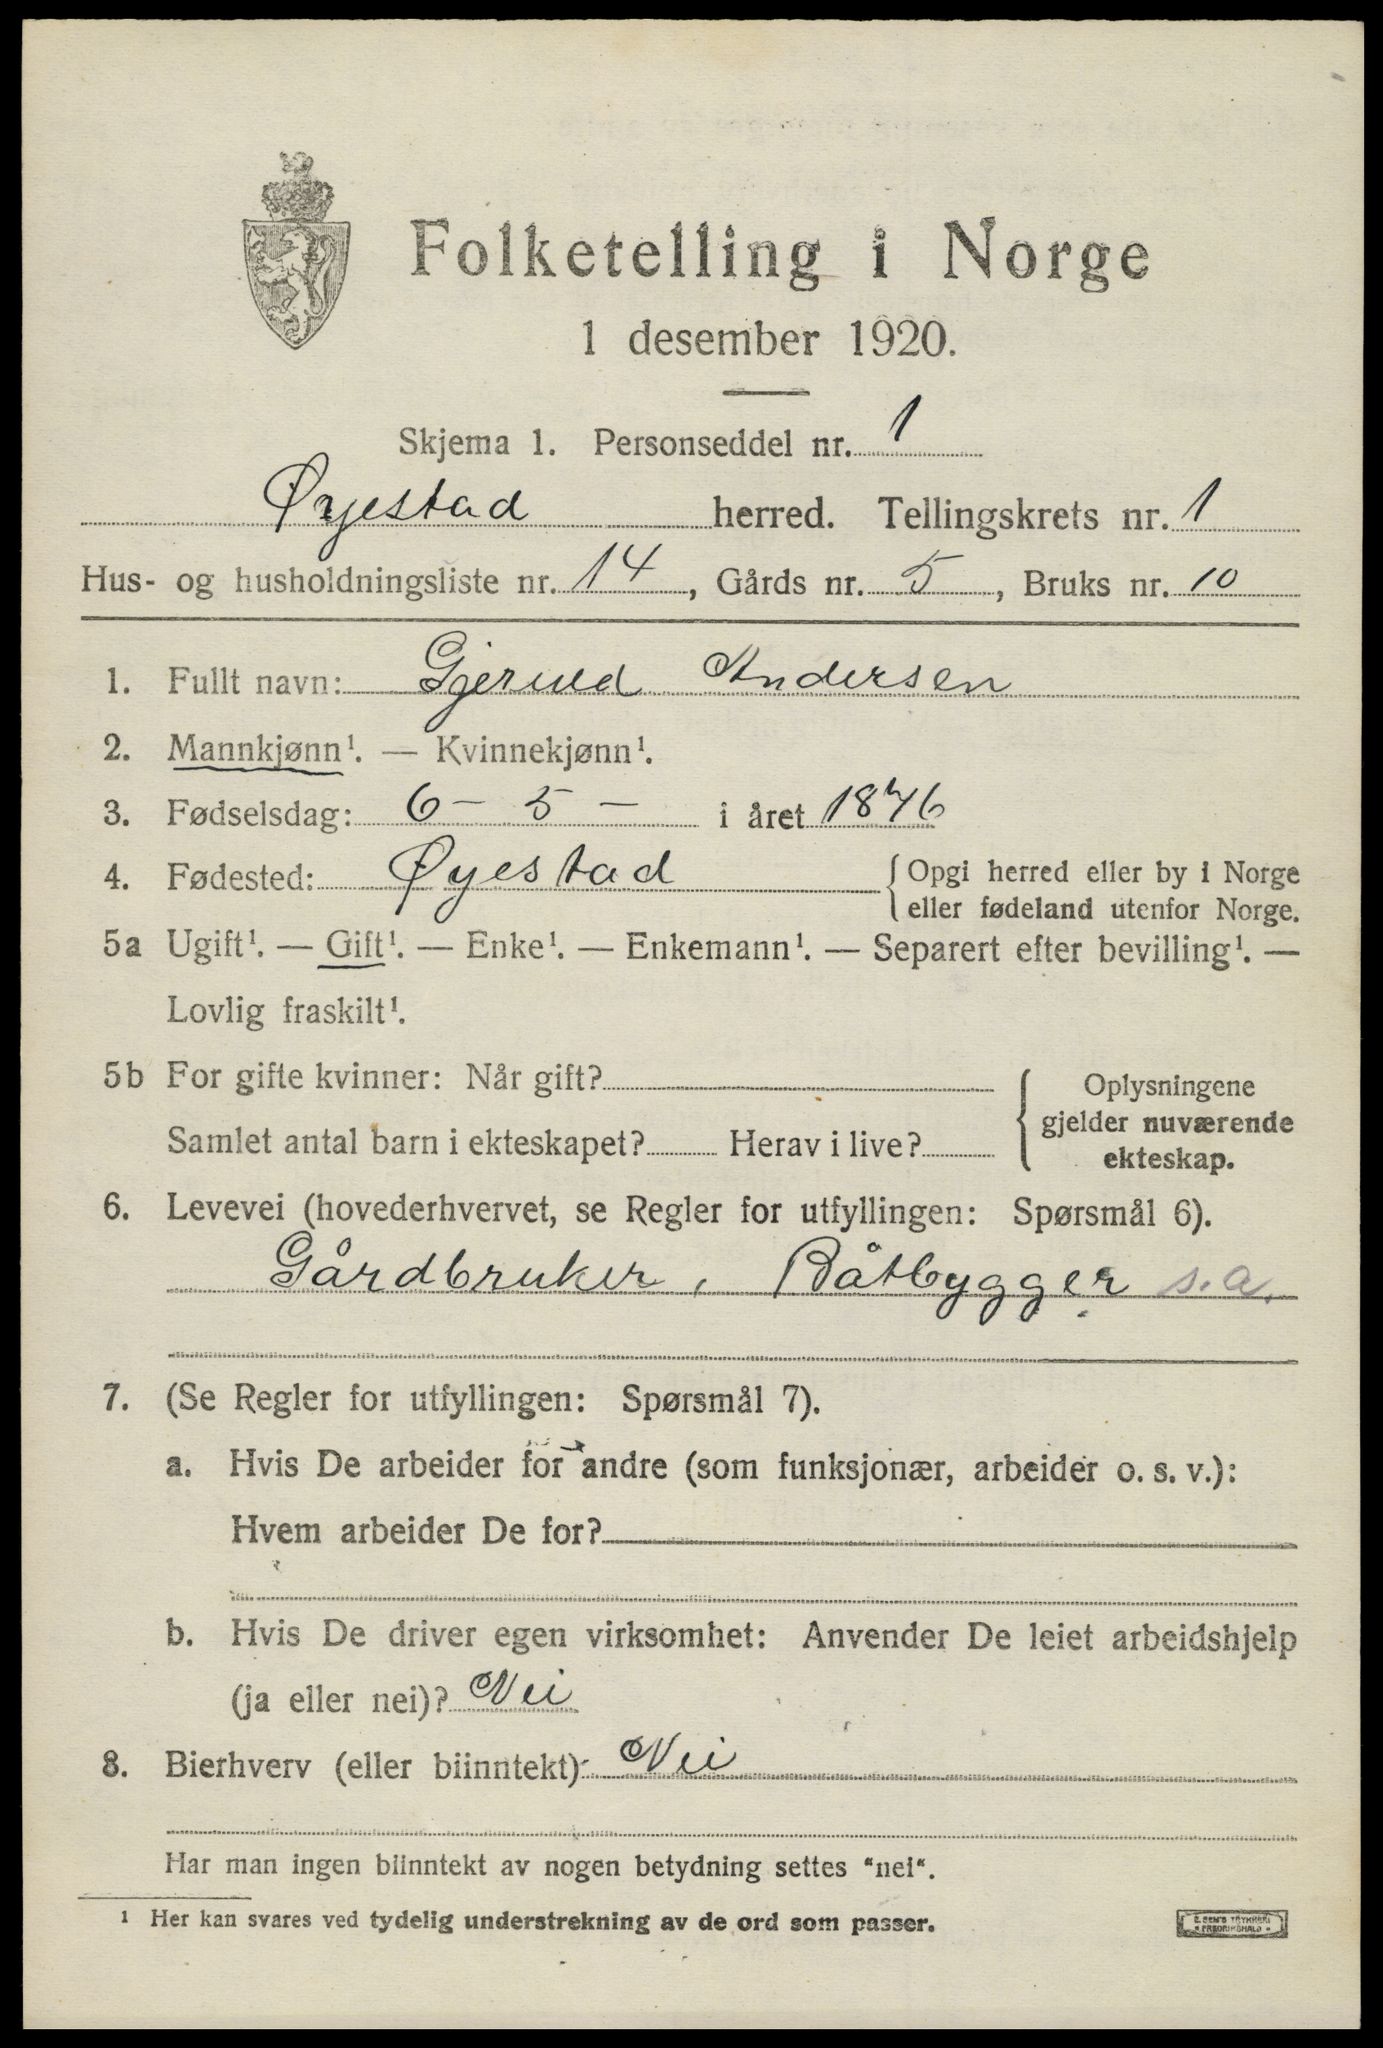 Folketelling i Norge
1 desember 1920.
Skjema 1. Personseddel nr. 1
Øyestad herred. Tellingskrets nr. 1
Hus- og husholdningsliste nr. 14, Gårds nr. 5, Bruks nr. 10
1. Fullt navn: Andersen
2. Mannkjønn¹. — Kvinnekjønn¹.
3. Fødselsdag: 6 - 5 - i året 1876
4. Fødested: Øyestad { Opgi herred eller by i Norge
eller fødeland utenfor Norge.
5a Ugift¹. — Gift¹. — Enke¹. — Enkemann¹. — Separert efter bevilling¹. —
Lovlig fraskilt¹.
5b For gifte kvinner: Når gift?
Samlet antal barn i ekteskapet? Herav i live?
{ Oplysningene
gjelder nuværende
ekteskap.
6. Levevei (hovederhvervet, se Regler for utfyllingen: Spørsmål 6).
Gårdbruker, Båtbygger s.a.
7. (Se Regler for utfyllingen: Spørsmål 7).
a. Hvis De arbeider for andre (som funksjonær, arbeider o. s. v.):
Hvem arbeider De for?
b. Hvis De driver egen virksomhet: Anvender De leiet arbeidshjelp
(ja eller nei)? Nei
8. Bierhverv (eller biinntekt): Nei
Har man ingen biinntekt av nogen betydning settes "nei".
¹ Her kan svares ved tydelig understrekning av de ord som passer.